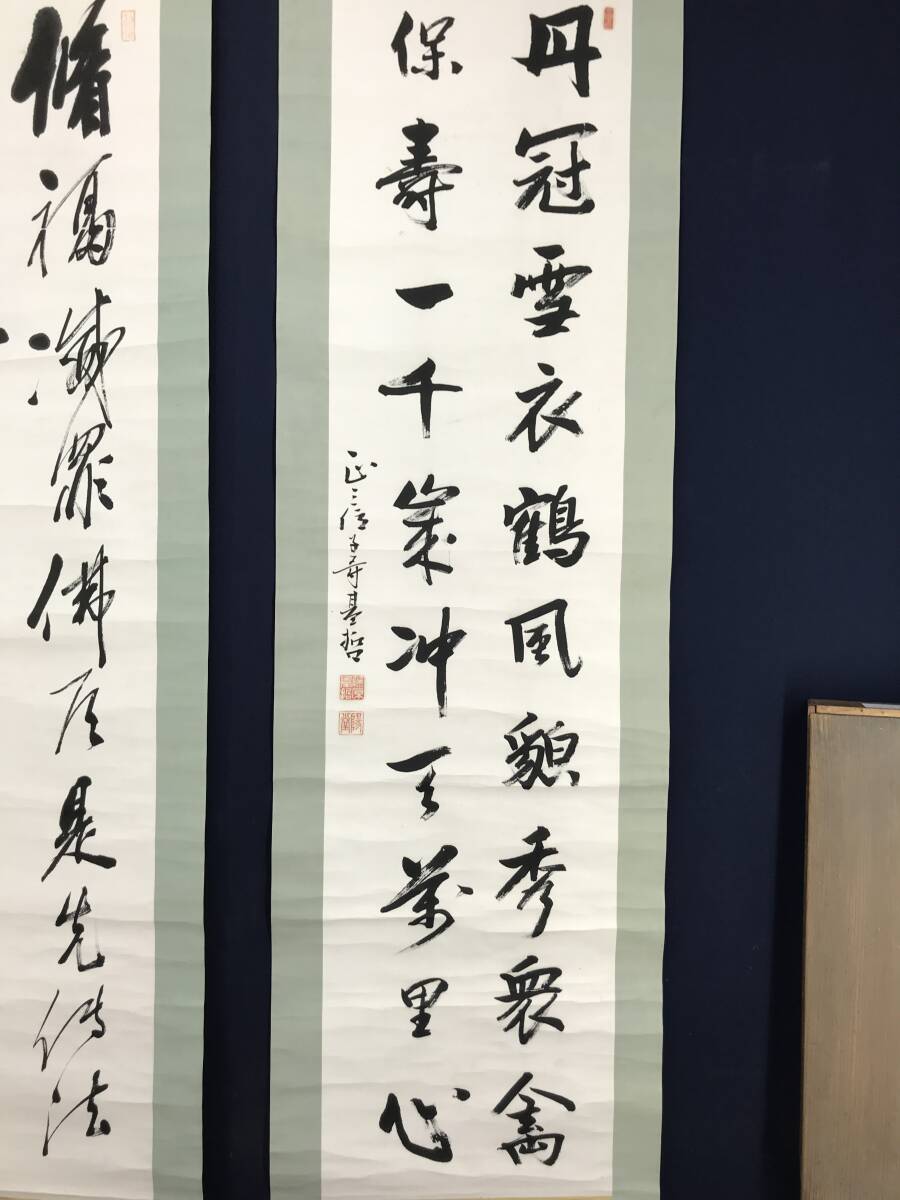 丹冠雪衣鶴風貌秀衆禽
保壽一千歳冲天萬里心
正三位子爵基哲
脩福滅罪佛
是先傳法